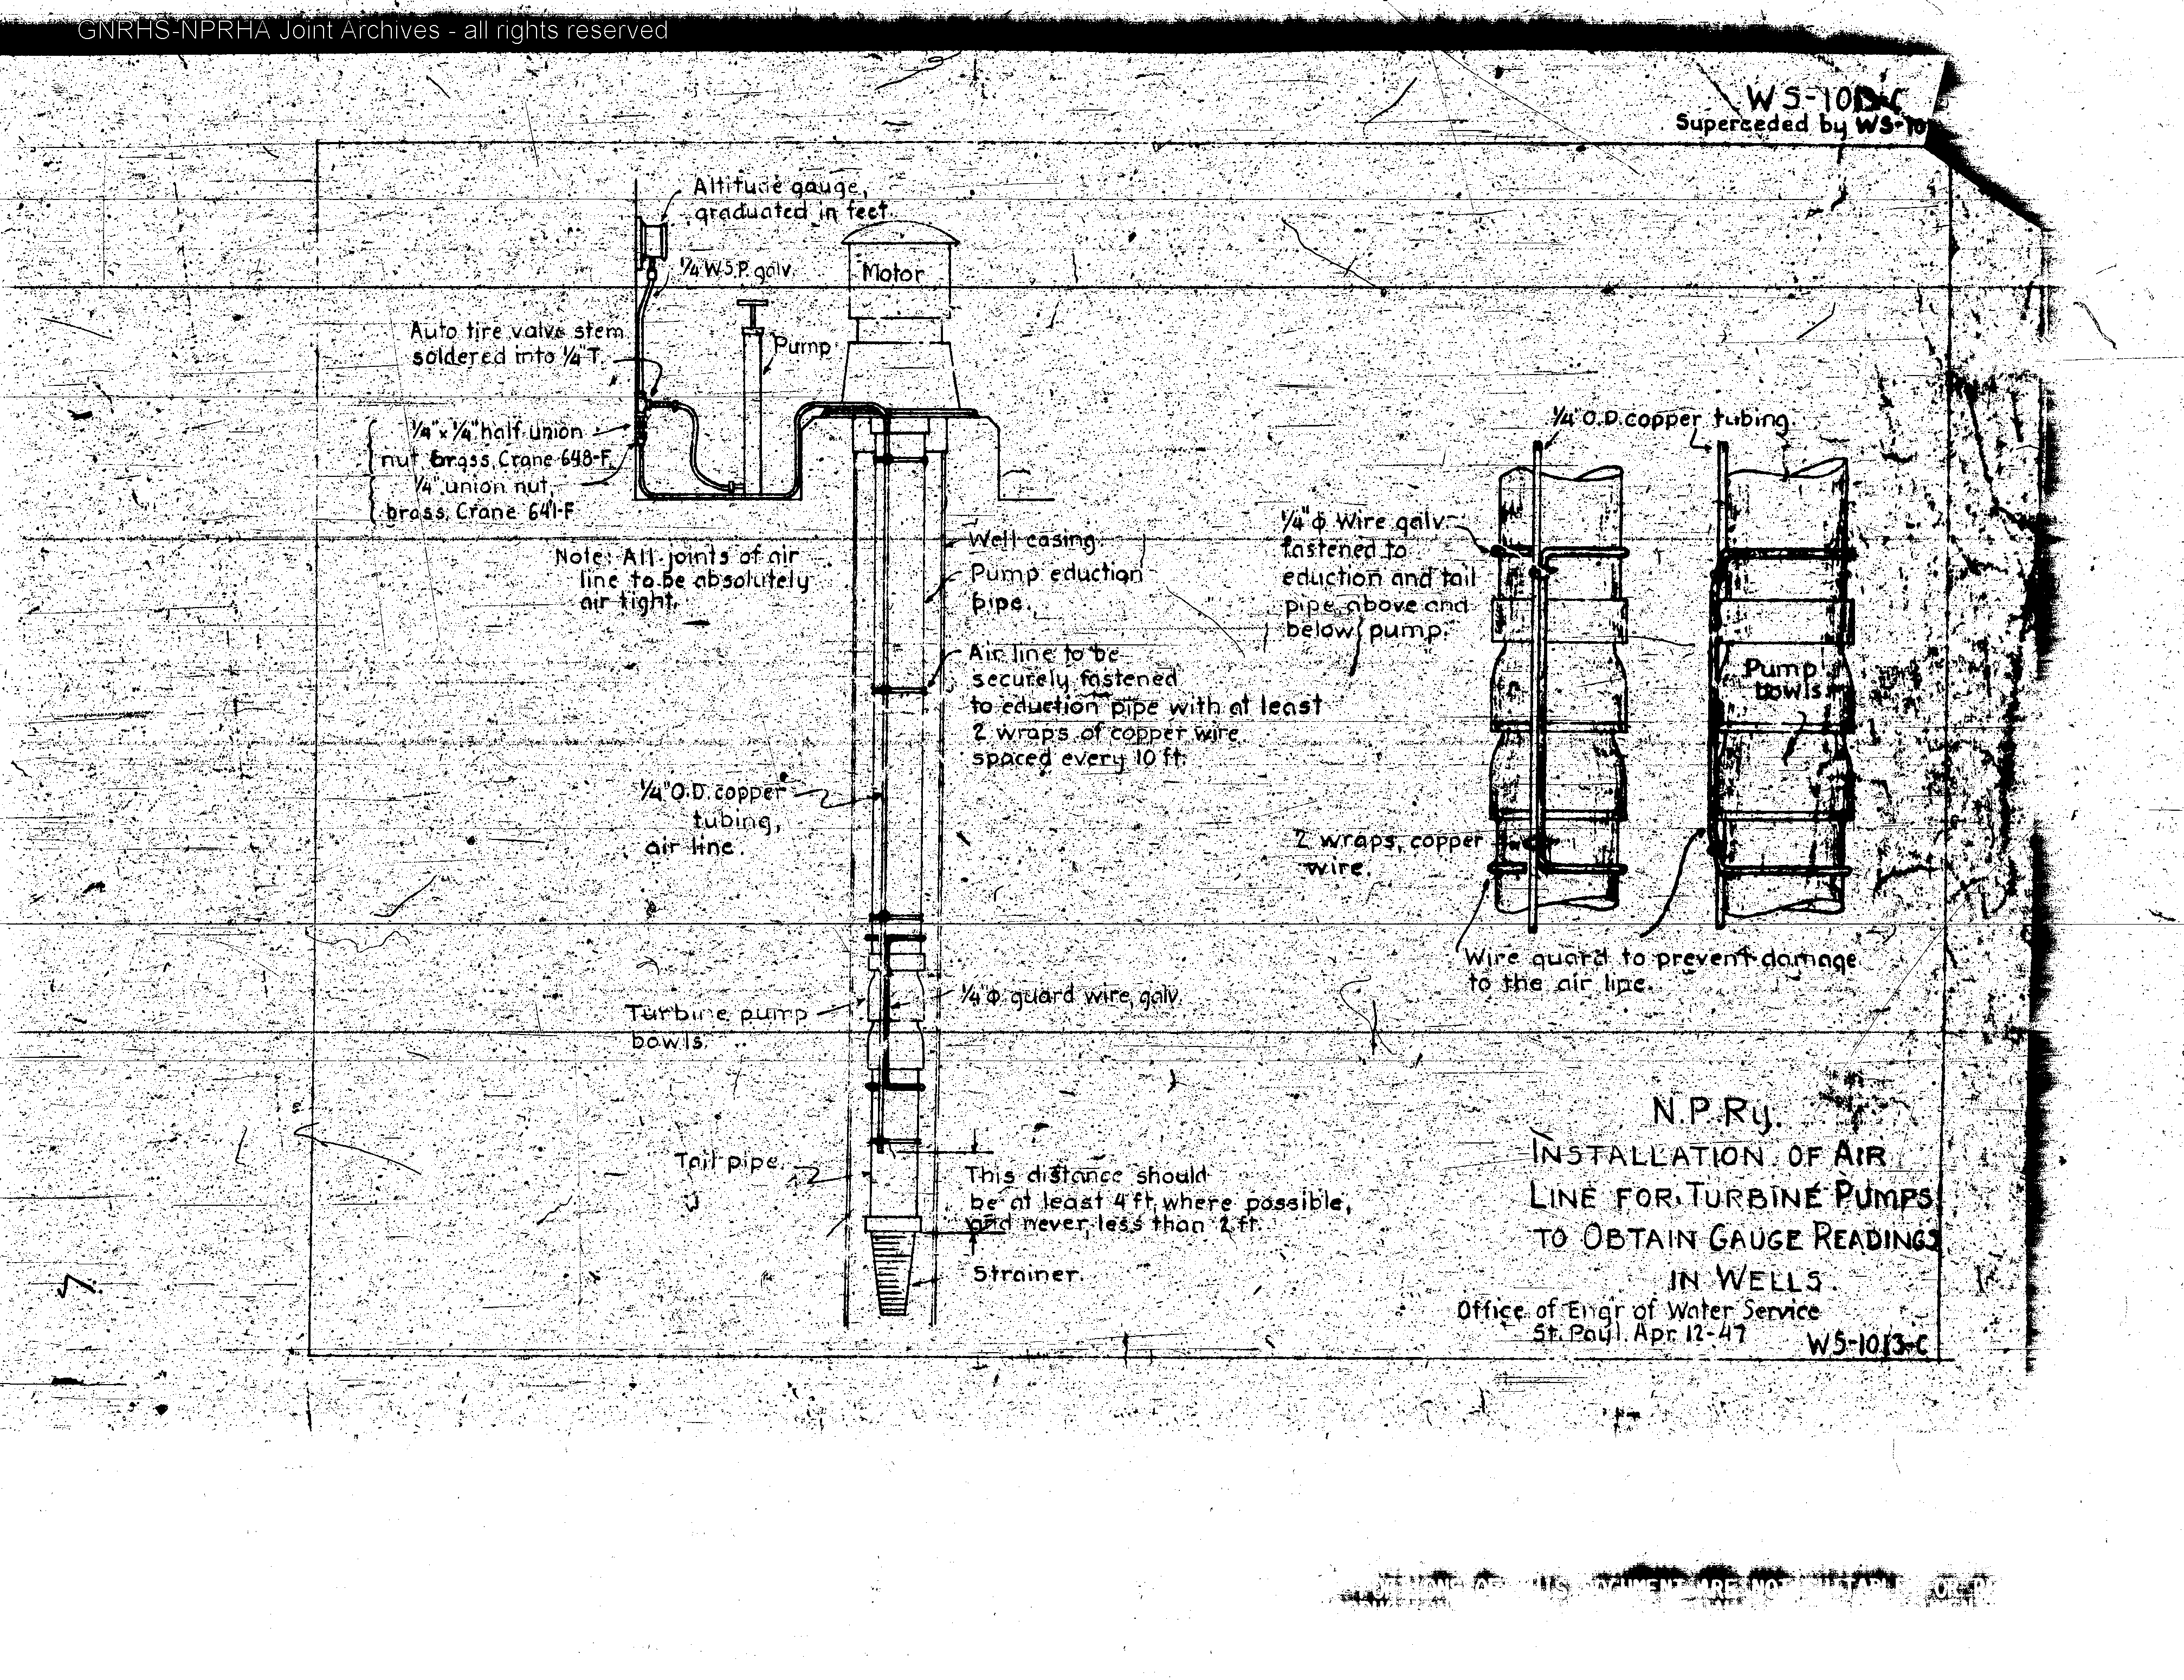 GNRHS-NPRHA Joint Archives - all rights reserved
Superceded by WS-10
Altitude gauge,
graduated in feet.
1/4 W.S.P. galv.
Motor
Auto tire valve stem
soldered into 1/4" T.
Pump
1/4" x 1/4" half union
nut brass, Crane 648-F
1/4" union nut,
brass, Crane 641-F
Note: All joints of air
line to be absolutely
air tight.
Well casing.
Pump eduction
pipe.
Air line to be
securely fastened
to eduction pipe with at least
2 wraps of copper wire
spaced every 10 ft.
1/4" O.D. copper
tubing,
air line.
Turbine pump
bowls.
1/4" φ guard wire, galv.
Tail pipe.
This distance should
be at least 4 ft. where possible,
and never less than 2 ft.
Strainer.
1/4" O.D. copper tubing.
1/4" φ Wire galv.
fastened to
eduction and tail
pipe above and
below pump.
Pump
bowls
2 wraps, copper
wire.
Wire guard to prevent damage
to the air line.
N.P.Ry.
INSTALLATION OF AIR
LINE FOR TURBINE PUMPS
TO OBTAIN GAUGE READINGS
IN WELLS.
Office of Engr of Water Service
St. Paul. Apr. 12-47
WS-1013-C